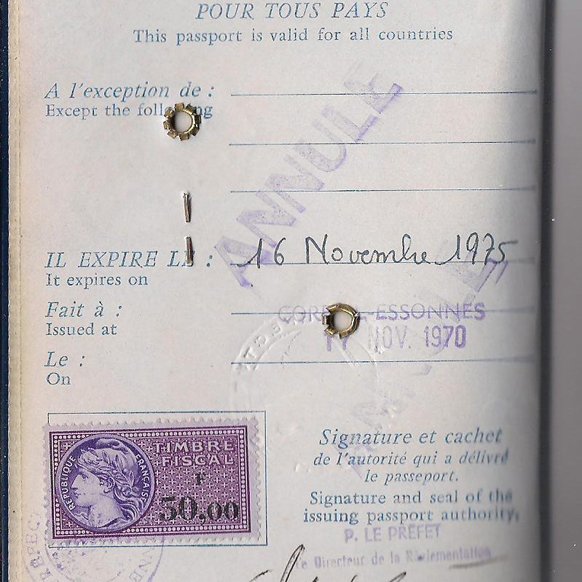 POUR TOUS PAYS
This passport is valid for all countries
A l'exception de :
Except the following
ANNULE
IL EXPIRE LE : 16 Novembre 1975
It expires on
Fait à : CORBEIL-ESSONNES
Issued at
17 NOV. 1970
Le :
On
ANNULE
TIMBRE
FISCAL
RÉPUBLIQUE FRANÇAISE
F
50,00
Signature et cachet
de l'autorité qui a délivré
le passeport.
Signature and seal of the
issuing passport authority,
P. LE PREFET
Le Directeur de la Réglementation